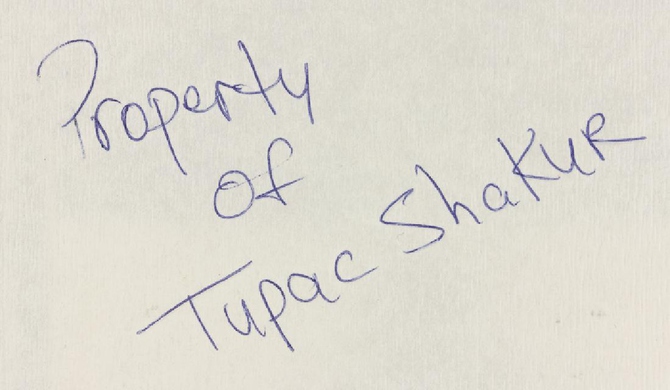 Property
of
Tupac Shakur